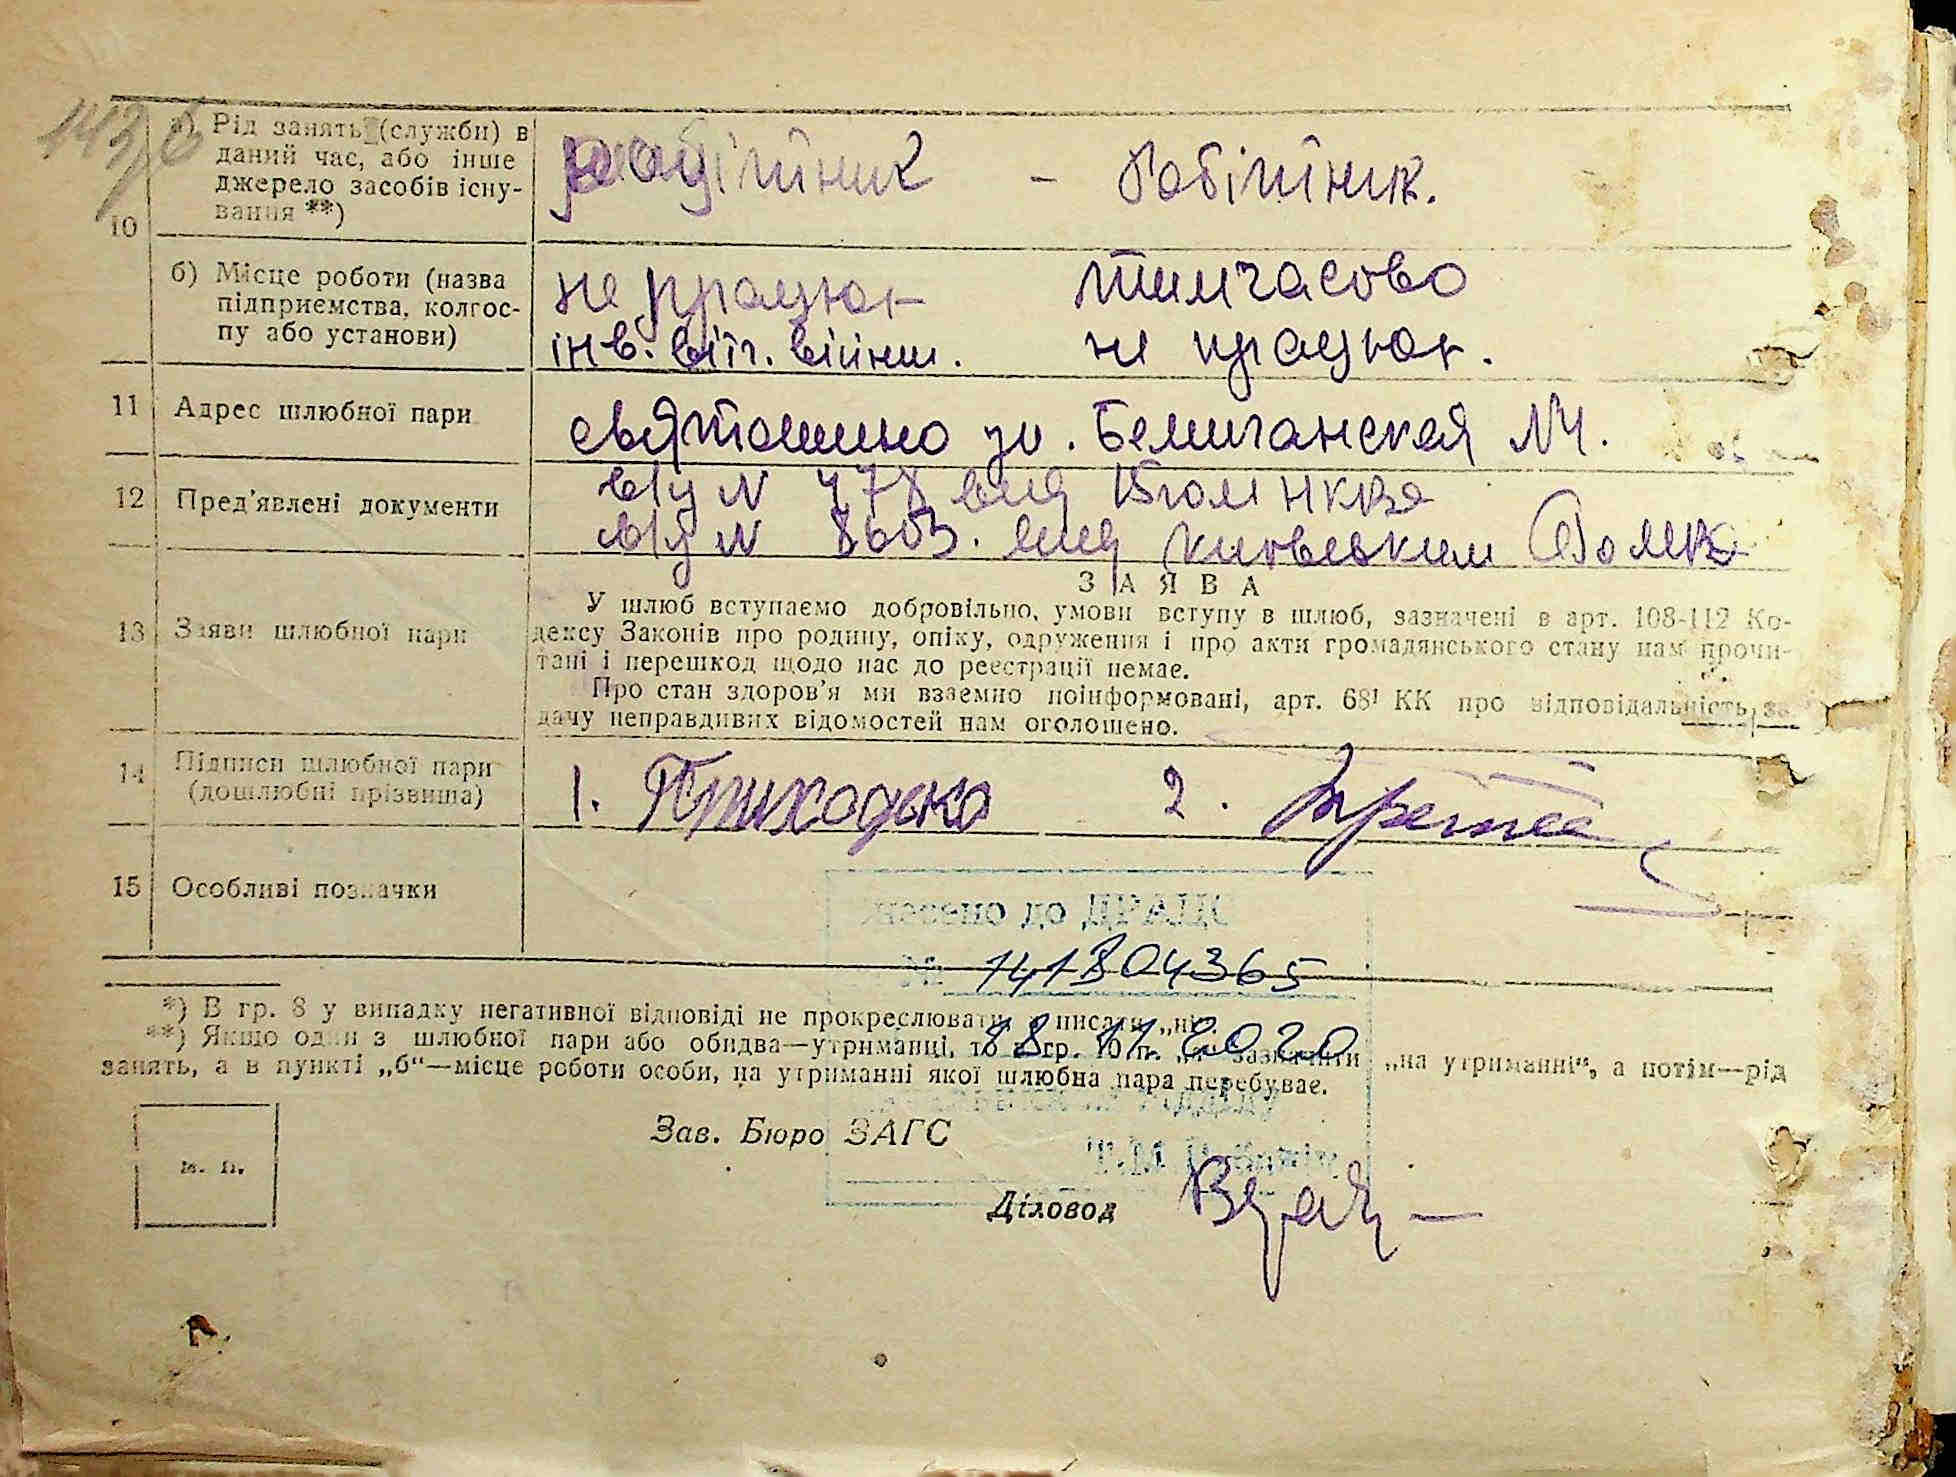 143
а) Рід занять (служби) в
даний час, або інше
джерело засобів існу-
вання **)
10
робітник - робітник.
б) Місце роботи (назва
підприємства, колгос-
пу або установи)
не працює тимчасово
інв. віт. війни. не працює.
11 Адрес шлюбної пари
Святошино ул. Беличанская №4.
12 Пред'явлені документи
в/у № 478 вид
в/у № 8603. вид Київським
ЗАЯВА
13 Заяви шлюбної пари
У шлюб вступаємо добровільно, умови вступу в шлюб, зазначені в арт. 108-112 Ко-
дексу Законів про родину, опіку, одруження і про акти громадянського стану нам прочи-
тані і перешкод щодо нас до реєстрації немає.
Про стан здоров'я ми взаємно поінформовані, арт. 68¹ КК про відповідальність за
дачу неправдивих відомостей нам оголошено.
14 Підписи шлюбної пари
(дошлюбні прізвища)
1. Приходько 2.
15 Особливі позначки
внесено до ДРАЦС
№ 141804365
*) В гр. 8 у випадку негативної відповіді не прокреслювати, а писати „ні“.
18 11 2020
**) Якщо один з шлюбної пари або обидва—утриманці, то в гр. 10 п. „а“ зазначити „на утриманні“, а потім—рід
занять, а в пункті „б“—місце роботи особи, на утриманні якої шлюбна пара перебуває.
Зав. Бюро ЗАГС
м. п.
Діловод